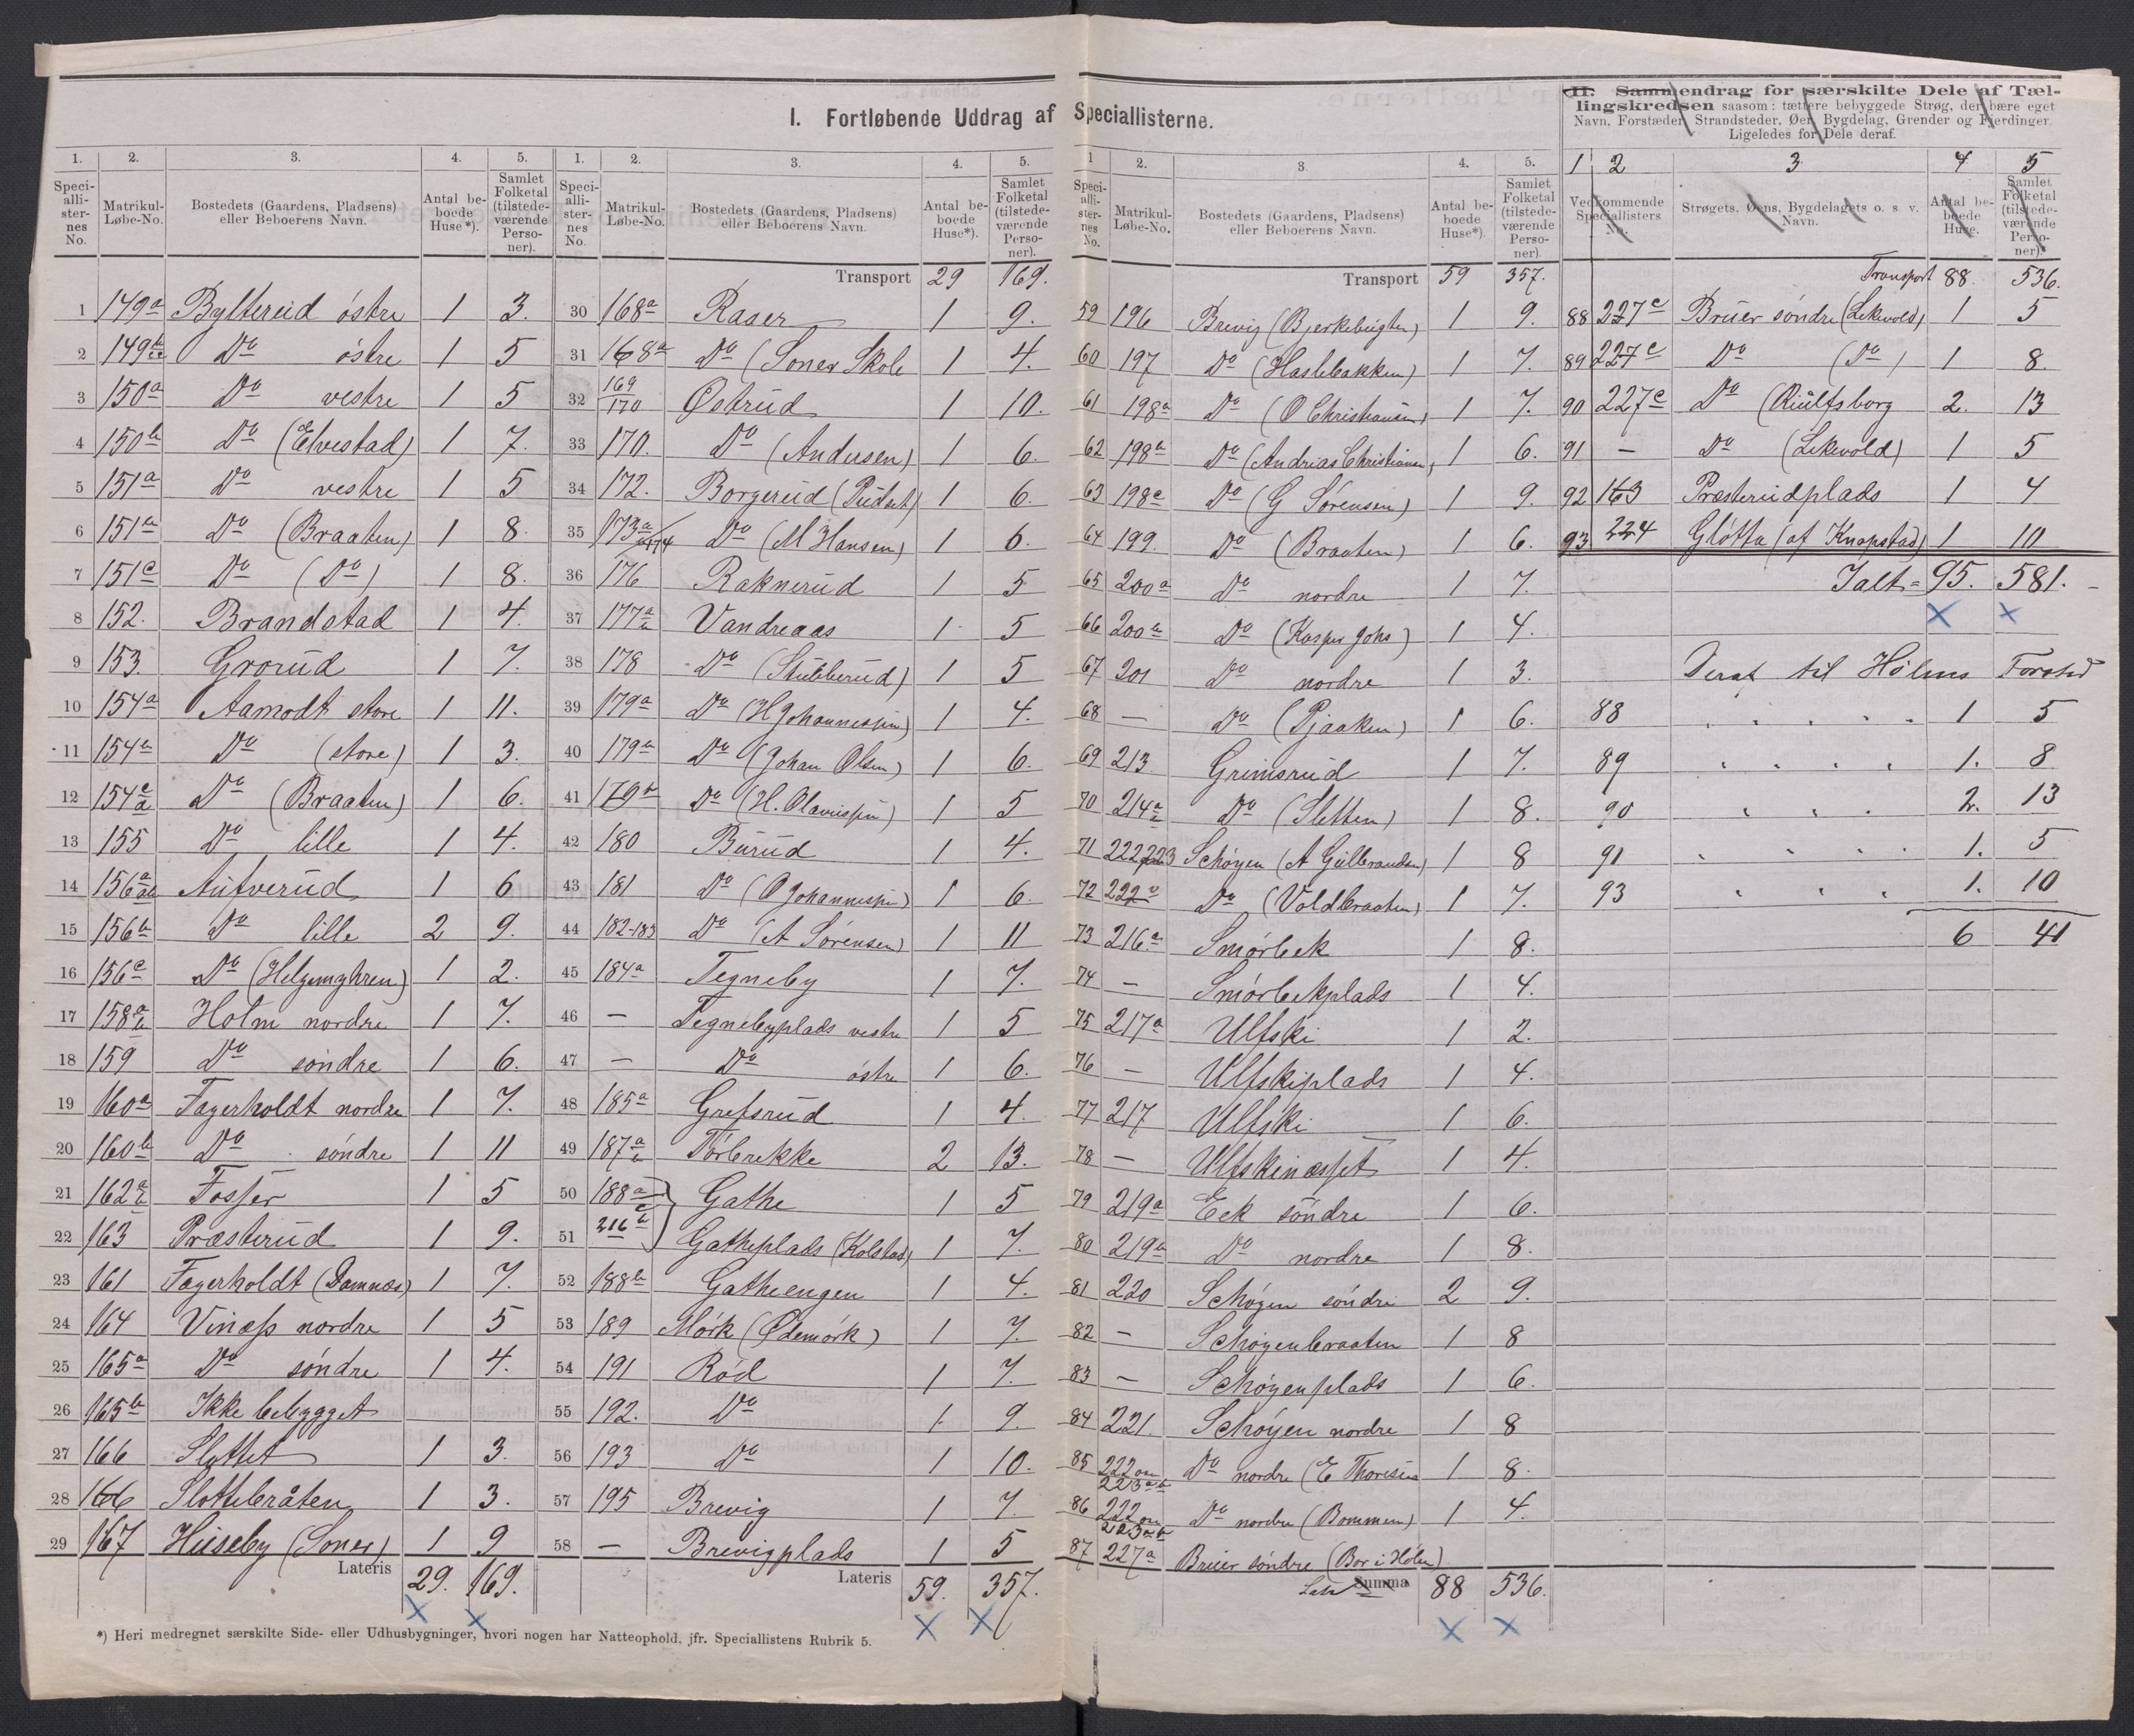 I. Fortløbende Uddrag af Speciallisterne.
1. 2. 3. 4. 5.
Speci-alli-ster-nes No. Matrikul-Løbe-No. Bostedets (Gaardens, Pladsens) eller Beboerens Navn. Antal be-boede Huse*). Samlet Folketal (tilstede-værende Perso-ner).
1 149a Byltereid östre 1 3.
2 149b Do östre 1 5
3 150a Do vestre 1 5
4 150b Do (Elvestad) 1 7.
5 151a Do vestre 1 5
6 151b Do (Braaten) 1 8.
7 151c Do (Do) 1 8.
8 152. Brandstad 1 4.
9 153. Grorud 1 7.
10 154a Aamodt store 1 11.
11 154b Do (store) 1 3.
12 154c Do (Braaten) 1 6.
13 155 Do lille 1 4.
14 156a Aufverud 1 6
15 156b Do lille 2 9.
16 156c Do (Helgemyhren) 1 2.
17 158a Holm nordre 1 7.
18 159 Do söndre 1 6.
19 160a Fagerholdt nordre 1 7.
20 160b Do söndre 1 11
21 162a Fosser 1 5
22 163 Præsterud 1 9.
23 161 Fagerholdt (Damnæs) 1 7.
24 164 Vinæss nordre 1 5
25 165a Do söndre 1 4.
26 165b Ikke bebygget
27 166 Slottet 1 3.
28 166 Slottebråten 1 3.
29 167 Huseby (Soner) 1 9
Lateris 29. 169.
*) Heri medregnet særskilte Side- eller Udhusbygninger, hvori nogen har Natteophold, jfr. Speciallistens Rubrik 5.
1. 2. 3. 4. 5.
Speci-alli-ster-nes No. Matrikul-Løbe-No. Bostedets (Gaardens, Pladsens) eller Beboerens Navn. Antal be-boede Huse*). Samlet Folketal (tilstede-værende Perso-ner).
Transport 29 169.
30 168a Raser 1 9.
31 168a Do (Soner Skole 1 4.
32 169/170 Östrud 1 10.
33 170. Do (Andersen) 1 6.
34 172. Borgerud (Pudset) 1 6.
35 173a 174 Do (M Hansen) 1 6.
36 176 Raknerud 1 5
37 177a Vandreaas 1 5
38 178 Do (Stubberud) 1 5
39 179a Do (H Johannessen) 1 4.
40 179b Do (Johan Olsen) 1 6.
41 179b Do (H. Olaviessen) 1 5
42 180 Burud 1 4.
43 181 Do (O Johannessen) 1 6.
44 182-183 Do (A Sörensen) 1 11
45 184a Tegneby 1 7.
46 — Tegnebyplads vestre 1 5
47 — Do östre 1 6.
48 185a Grefsrud 1 4.
49 187a Törbrekke 2 13.
50 188a Gathe 1 5
51 216b Gatheplads (Kolstad) 1 7.
52 188b Gatheengen 1 4.
53 189 Mörk (Ödemörk) 1 7.
54 191 Röd 1 7.
55 192. Do 1. 9.
56 193 Do 1 10.
57 195 Brevig 1 7.
58 — Brevigplads 1 5
Lateris 59. 357.
1 2. 3. 4. 5.
Speci-alli-ster-nes No. Matrikul-Løbe-No. Bostedets (Gaardens, Pladsens) eller Beboerens Navn. Antal be-boede Huse*). Samlet Folketal (tilstede-værende Perso-ner)
Transport 59 357.
59 196 Brevig (Bjerkebugten) 1 9.
60 197 Do (Haslebakken) 1 7.
61 198a Do (O Christiansen) 1 7.
62 198a Do (Andrias Christiansen) 1 6.
63 198c Do (G Sörensen) 1 9.
64 199. Do (Braaten) 1 6.
65 200a Do nordre 1 7.
66 200b Do (Kasper Johs) 1 4.
67 201 Do nordre 1 3.
68 — Do (Pjaaken) 1 6.
69 213 Grimsrud 1 7.
70 214a Do (Sletten) 1 8.
71 222 223 Schöyen (A Gulbrandsen) 1 8
72 222 Do (Voldbraaten) 1 7.
73 216a Smörbek 1 8.
74 — Smörbekplads 1 4.
75 217a Ulfski 1 2.
76 — Ulfskiplads 1 4.
77 217 Ulfski 1 6.
78 — Ulfskinæsset 1 4.
79 219a Eek söndre 1 6.
80 219b Do nordre 1 8.
81 220 Schöyen söndre 2 9.
82 — Schöyenbraaten 1 8
83 — Schöyenplads 1 6.
84 221. Schöyen nordre 1 8
85 222 223 Do nordre (E Thoresen 1 8.
86 222 223 Do nordre (Bommen) 1 4.
87 227a Bruer söndre (Bor i Hölen)
Summa 88 536.
II. Sammendrag for særskilte Dele af Tæl-
lingskredsen saasom: tættere bebyggede Strøg, der bære eget
Navn. Forstæder, Strandsteder, Øer, Bygdelag, Grender og Fjerdinger.
Ligeledes for Dele deraf.
1 2 3 4 5
Vedkommende Speciallisters No. Strøgets, Øens, Bygdelagets o. s. v. Navn. Antal be-boede Huse. Samlet Folketal (tilstede-værende Perso-ner).
Transport 88. 536.
88 227c Bruer söndre (Lekevold) 1 5
89 227c Do (Do) 1 8.
90 227c Do (Riulfsborg 2. 13
91 — Do (Lekevold) 1 5
92 163 Præsterudplads 1 4
93 224 Glötta (af Knapstad) 1 10
Ialt = 95. 581.
Deraf til Hölens Forsted
88 1 5
89 1. 8
90 2. 13
91 1. 5
93 1. 10
6 41